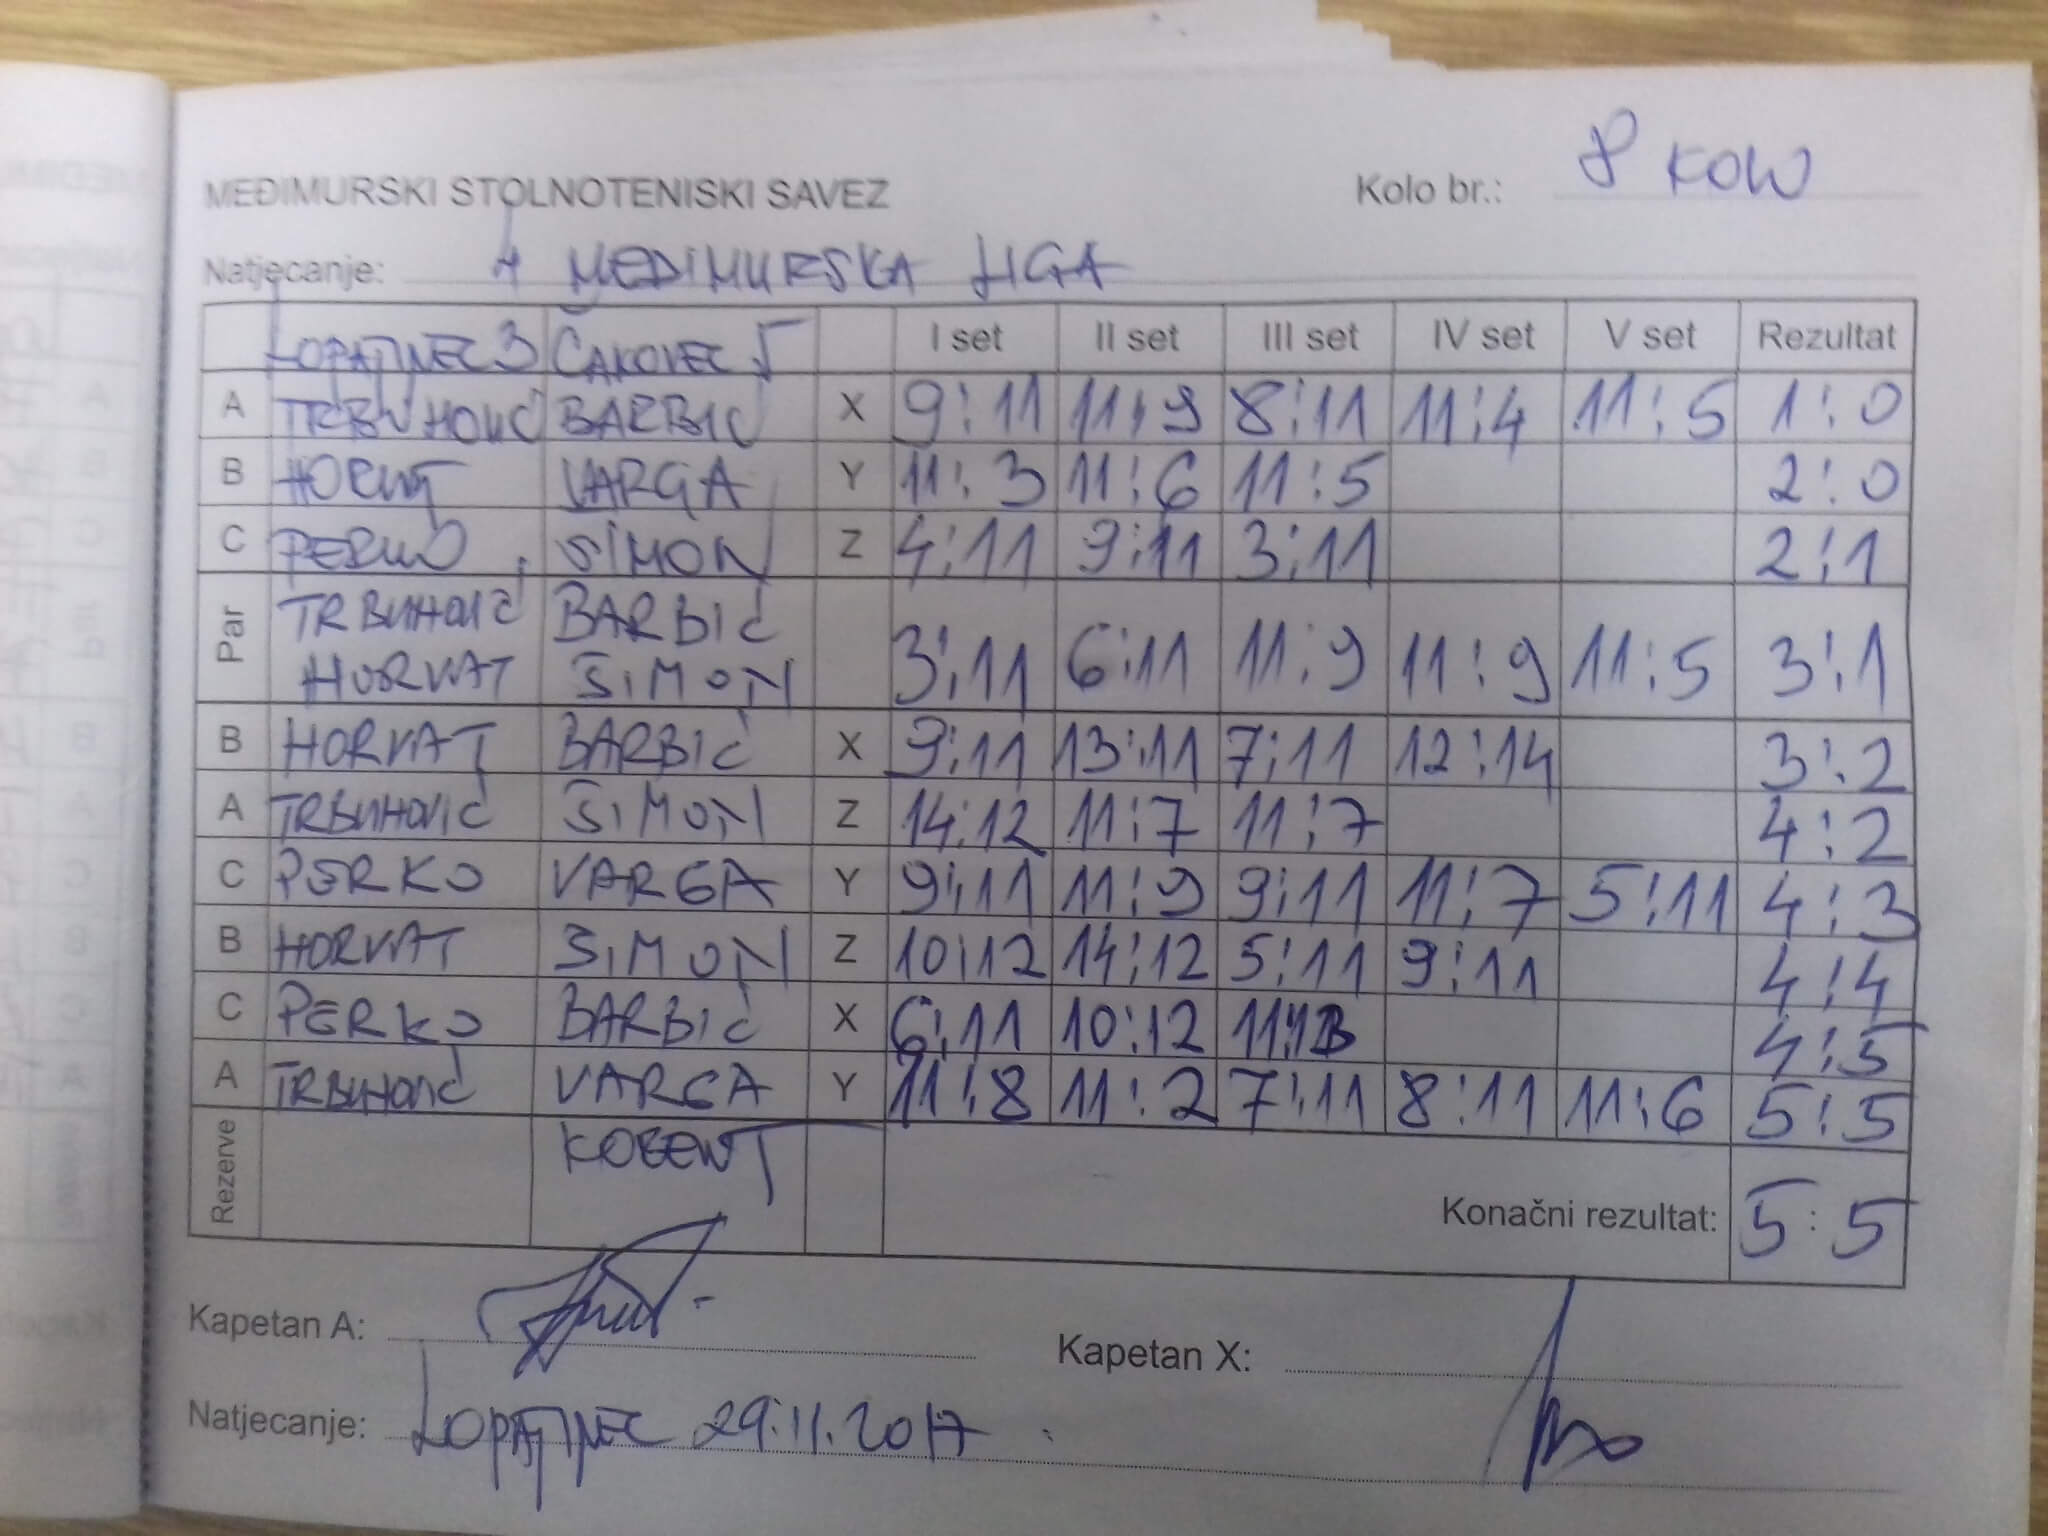 MEĐIMURSKI STOLNOTENISKI SAVEZ
Kolo br.: 8 KOLO
Natjecanje: 1 MEĐIMURSKA LIGA
LOPATINEC 3 ČAKOVEC 5 I set II set III set IV set V set Rezultat
A TRBUHOVIĆ BARBIĆ X 9:11 11:9 8:11 11:4 11:5 1:0
B HORVAT VARGA Y 11:3 11:6 11:5 2:0
C PERKO ŠIMON Z 4:11 9:11 3:11 2:1
Par TRBUHOVIĆ BARBIĆ
HORVAT ŠIMON 3:11 6:11 11:9 11:9 11:5 3:1
B HORVAT BARBIĆ X 9:11 13:11 7:11 12:14 3:2
A TRBUHOVIĆ ŠIMON Z 14:12 11:7 11:7 4:2
C PERKO VARGA Y 9:11 11:9 9:11 11:7 5:11 4:3
B HORVAT ŠIMON Z 10:12 14:12 5:11 9:11 4:4
C PERKO BARBIĆ X 6:11 10:12 11:13 4:5
A TRBUHOVIĆ VARGA Y 11:8 11:2 7:11 8:11 11:6 5:5
Rezerve
Konačni rezultat: 5:5
Kapetan A:
Kapetan X:
Natjecanje: LOPATINEC 29.11.2017